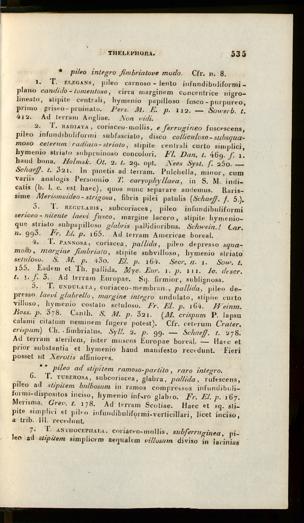 THELEPHORA. 535
* pileo integro fimbriatove modo. Cfr. n. 8.
1. T. ELEGANS, pileo carnoso-lento infundibuliformi-
plano candido-tomentoso, circa marginem concentrice nigro-
lineato, stipite centrali, hymenio papilloso fusco-purpureo,
primo griseo-pruinato. Pers. M. E. p. 112. — Sowerb. t.
412. Ad terram Angliae. Non vidi.
2. T. RADIATA, coriaceo-mollis, e ferrugineo fuscescens,
pileo infundibuliformi subfasciato, disco colliculoso-subsqua-
moso ceterum radiato-striato, stipite centrali curto simplici,
hymenio striato subpruinoso concolori. Fl. Dan. t. 469. f. 1.
haud bona. Holmsk. Ot. 2. t. 29. opt. Nees Syst. f. 250. —
Schaeff. t. 321. In pinetis ad terram. Pulchella, minor, cum
variis analogis Personio T. caryophyllaea, in S. M. indi-
catis (b. l. c. est haec), quos nunc separare audemus. Raris-
sime Merismoideo-strigosa, fibris pilei patulis (Schaeff. f. 5.).
3. T. REGULARIS, subcoriacea, pileo infundibuliformi
sericeo-nitente laevi fusco, margine lacero, stipite hymenio-
que striato subpapilloso glabris pallidioribus. Schwein.! Car.
n. 993. Fr. El. p. 165. Ad terram Americae boreal.
4. T. PANNOSA, coriacea, pallida, pileo depresso squa-
moso, margine fimbriato, stipite subvilloso, hymenio striato
setuloso. S. M. p. 430. El. p. 161. Sec. n. 1. Sow. t.
155. Eadem et Th. pallida. Myc. Eur. 1. p. 111. Ic. descr.
t. 1. f. 3. Ad terram Europae. Sp. firmior, sublignosa.
5. T. UNDULATA, coriaceo-membran., pallida, pileo de-
presso laevi glabrello, margine integro undulato, stipite curto
villoso, hymenio costato setuloso. Fr. El. p. 164. Winm.
Ross. p. 378. Canth. S. M. p. 321. (M. crispum P. lapsu
calami citatum neminem fugere potest). Cfr. ceterum Crater.
crispum) Ch. fimbriatus. Syll. 2. p. 99. — Schaeff. t. 278.
Ad terram sterilem, inter muscos Europae boreal. — Haec et
prior substantia et hymenio haud manifesto recedunt. Fieri
posset ut Xerotis affiniores.
** pileo ad stipitem ramoso-partito, raro integro.
6. T. TUBEROSA, subcoriacea, glabra, pallida, rufescens,
pileo ad stipitem bulbosum in ramos compressos infundibuli-
formi-dispositos inciso, hymenio infero glabro. Fr. El. p. 167.
Merisma. Grev. t. 178. Ad terram Scotiae. Haec et sq. sti-
pite simplici et pileo infundibuliformi-verticillari, licet inciso,
a trib. III. recedunt.
7. T. ANTHOCEPHALA, coriaceo-mollis, subferruginea, pi-
leo ad stipitem simplicem aequalem villosum diviso in lacinias